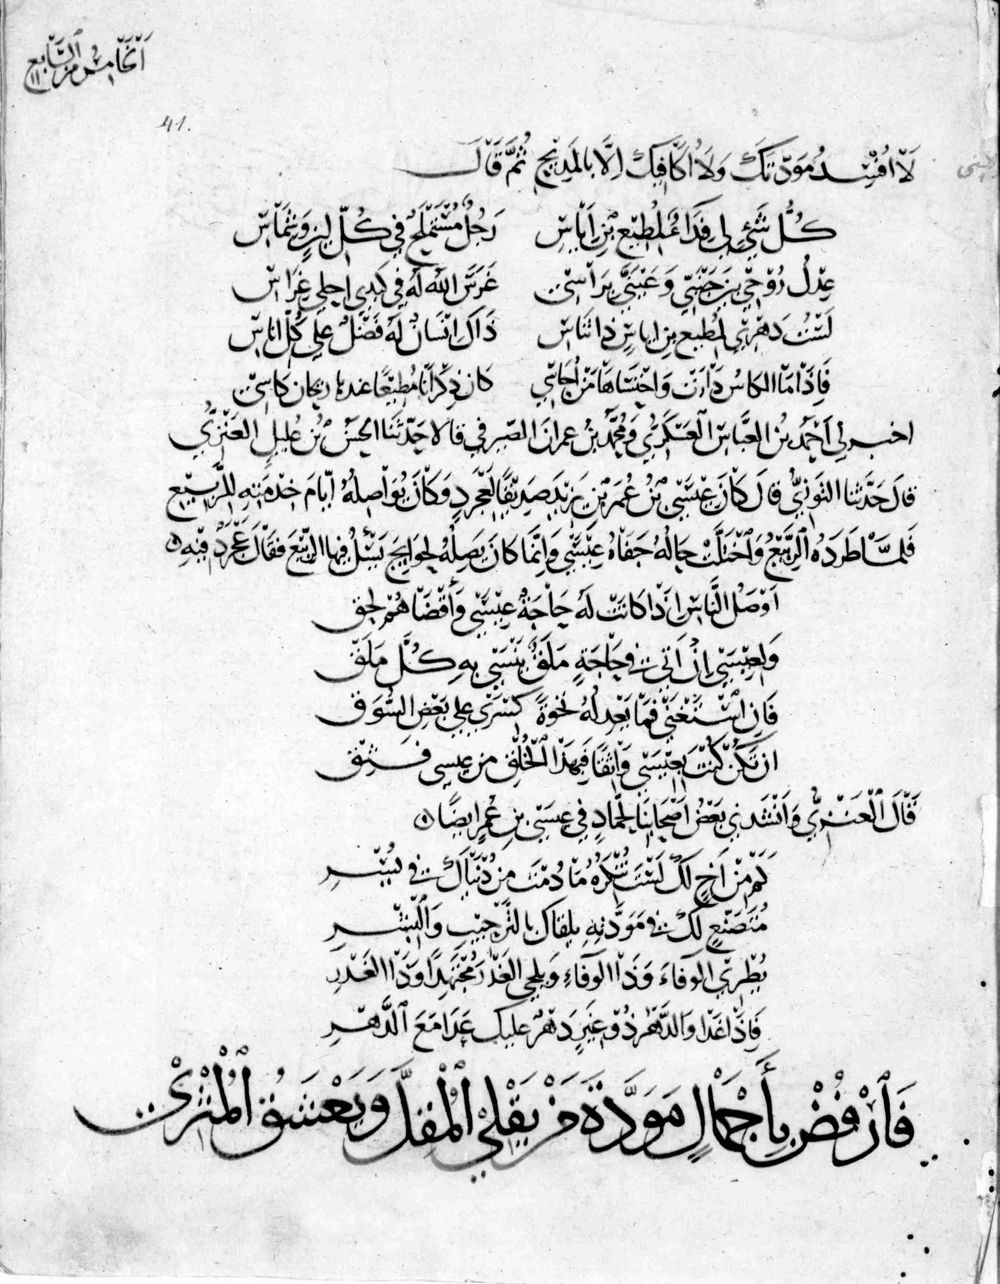 الخامس من السابع
41.
لَا اُفْسِدُ مَوَدَّتَكَ وَلَا اُكَافِيكَ اِلَّا بِالمَدِيحِ ثُمَّ قَالَ
كُلُّ شَيْءٍ لِي فِدَاءٌ لِمُطِيعِ بْنِ اِيَاسِ رَجُلٌ مُسْتَمْلَحٌ فِي كُلِّ لِينٍ وَشِمَاسِ
عِدْلُ رُوحِي بَيْنَ جَنْبَيَّ وَعَيْنَيَّ بِرَاْسِي غَرَسَ اللهُ لَهُ فِي كَبِدِي احلى غِرَاسِ
لَسْتُ دَهْرِي لمُطِيعِ بن اياسٍ ذا تَنَاسِ ذَاكَ اِنْسَانٌ لَهُ فَضْلٌ عَلى كُلِّ اناسِ
فَاِذَا مَا الكاسُ دَارَتْ وَاحْتَسَاهَا مَنْ اُحَاسِي كان ذِكْرَانَا مُطِيعًا عندها ريحان كَاسِي
اخبرني اَحْمَدُ بْنُ العَبَّاسِ العَسْكَرِيُّ وَمُحَمَّدُ بْنُ عمرانَ الصَّيرفي قالا حَدَّثَنَا الحَسَنُ بْنُ عُلَيلٍ العَنَزِيُّ
قالَ حَدَّثَنا التَّوَّزِيُّ قالَ كَانَ عِيسَى بْنُ عُمَرَ بْنِ يَزِيدَ صَدِيقًا لِعَجْرَدٍ وَكَانَ يُوَاصِلُهُ اَيَّامَ خِدْمَتِهِ لِلرَّبِيعِ
فَلَمَّا طَرَدَهُ الرَّبِيعُ وَاخْتَلَّتْ حَالُهُ جَفَاهُ عِيسَى وَاِنَّمَا كانَ يَصِلُهُ لِحَوَايجَ يَسْئَلُ فيها الرَّبِيعَ فَقَالَ عَجْرَدٌ فِيهِ
اَوْصَلُ النَّاسِ اِذَا كانَتْ لَهُ حَاجَةٌ عِيسَى وَأَقْضَاهُمْ لِحَقّ
وَلِعِيسَى اِنْ اَتَى فِي حَاجَةٍ مَلَقٌ يُنْسَى بِهِ كُلُّ مَلَقْ
فَاِنِ اسْتَغْنَى فَمَا يَعْدِلُهُ نَخْوَةً كِسْرَى عَلَى بَعْضِ السُّوَقْ
اِنْ تَكُنْ كُنْتَ بِعِيسَى وَاثِقًا فَبِهَذَا الْخُلْقِ مِن عيسى فَثِقْ
قَالَ الْعَنَزِيُّ وَاَنْشَدَنِي بَعْضُ اَصْحَابِنَا لِحَمَّادٍ فِي عِيسَى بْنِ عُمَرَ ايضًا
كَمْ مِنْ اَخٍ لَكَ لَسْتَ تُنْكِرُهُ مَا دُمْتَ مِنْ دُنْيَاكَ فِي يُسْرِ
مُتَصَنِّعٍ لَكَ فِي مَوَدَّتِهِ يَلْقَاكَ بِالتَّرْحِيبِ وَالْبِشْرِ
يُطْرِي الوَفَاءَ وَذَا الوَفَاءِ وَيَلْحِي الغَدْرَ مُجْتَهِدًا وَذَا الغَدْرِ
فَاِذَا عَدَا وَالدَّهْرُ ذُو غِيَرٍ دَهْرٌ عَلَيكَ عَدَا مَعَ الدَّهْرِ
فَارْفُضْ بِأَجْمَالٍ مَوَدَّةَ مَنْ يَقْلِي الْمُقِلَّ وَيَعْشَقُ الْمُثْرِي